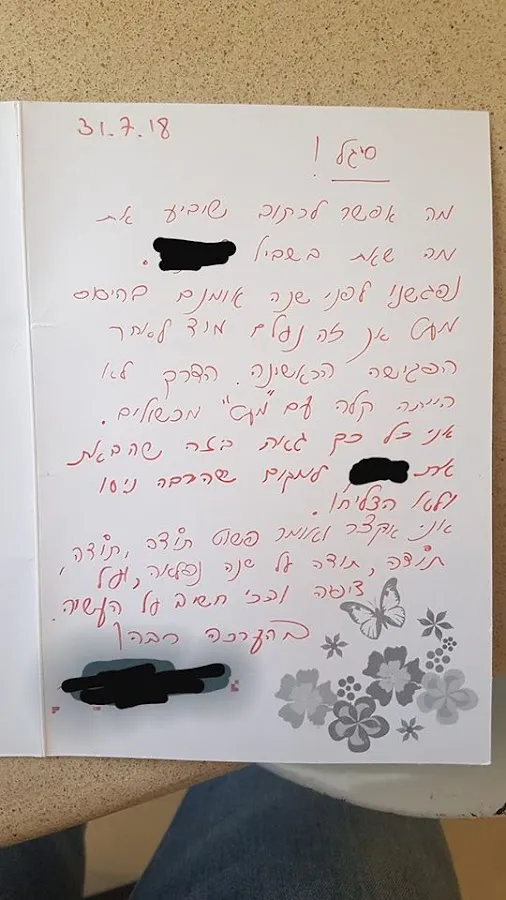 31.7.18
סיגל !
מה אפשר לכתוב שיביע את
מה שאת בשביל .
נפגשנו לפני שנה אומנם בהיסוס
מעט אך זה נעלם מיד לאחר
הפגישה הראשינה. הדרך לא
הייתה קלה עם "מעט" מכשולים.
אני כל כך גאות בזה שהבאת
את למקום שהרבה ניסו
ולא הצליחו.
אני אקצר ואומר פשוט תודה, תודה,
תודה, תודה על שנה נפלאה, ועל
ציפה והכי חשוב על העשיה.
בהערכה רבה